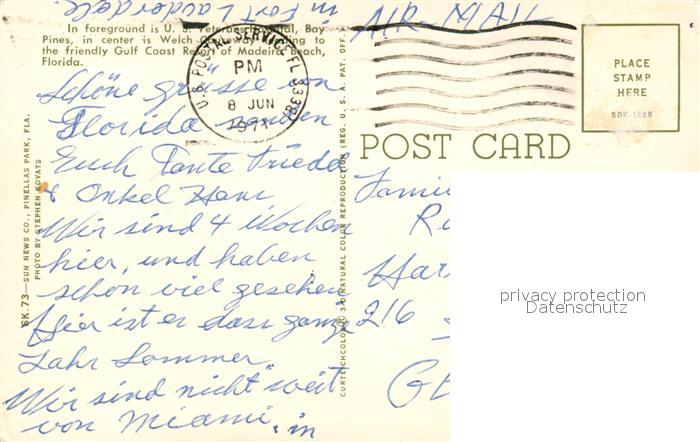 in Fort Lauderdale.
AIR-MAIL
In foreground is U. S. Veterans Hospital, Bay
Pines, in center is Welch Causeway leading to
the friendly Gulf Coast Resort of Madeira Beach,
Florida.
U.S. POSTAL SERVICE FL
PM
8 JUN
PLACE
STAMP
HERE
POST CARD
Schöne grüsse von
Florida senden
Euch Tante Frieda
& Onkel Hans
Wir sind 4 Wochen
hier, und haben
schon viel gesehen
Hier ist es dass ganze
Jahr Sommer
Wir sind nicht weit
von Miami. in
Fami
Ha
216
SK.73—SUN NEWS CO., PINELLAS PARK, FLA.
PHOTO BY STEPHEN KOVATS
CURTEICHCOLOR® 3-D NATURAL COLOR REPRODUCTION (REG. U.S.A. PAT. OFF.
privacy protection
Datenschutz